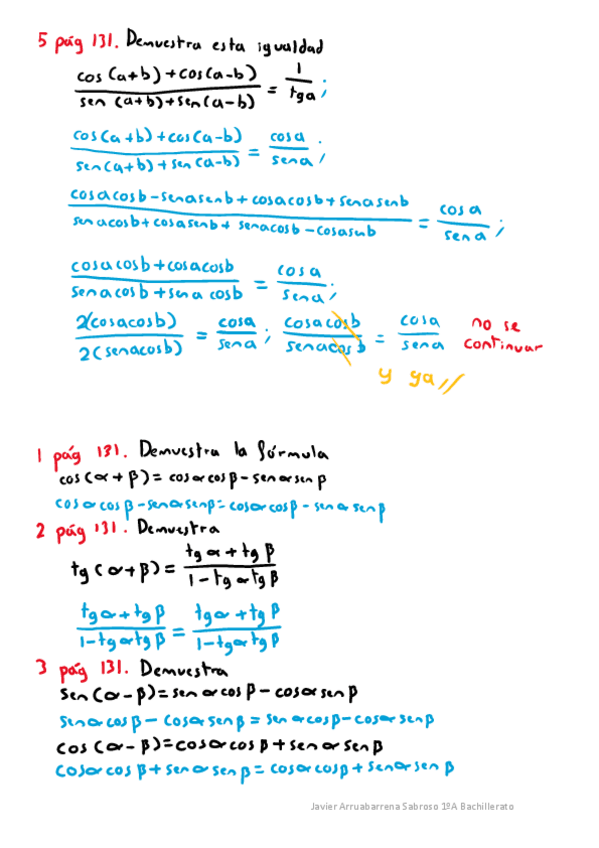 5 pág 131. Demuestra esta igualdad
cos(a+b)+cos(a-b) / sen(a+b)+sen(a-b) = 1 / tga ;
cos(a+b)+cos(a-b) / sen(a+b)+sen(a-b) = cosa / sena ;
cosacosb-senasenb+cosacosb+senasenb / senacosb+cosasenb+senacosb-cosasenb = cosa / sena ;
cosacosb+cosacosb / senacosb+senacosb = cosa / sena ;
2(cosacosb) / 2(senacosb) = cosa / sena ; cosacosb / senacosb = cosa / sena no se continuar
y ya//
1 pág 131. Demuestra la fórmula
cos(α+β)=cosαcosβ-senαsenβ
cosαcosβ-senαsenβ=cosαcosβ-senαsenβ
2 pág 131. Demuestra
tg(α+β)= tgα+tgβ / 1-tgαtgβ
tgα+tgβ / 1-tgαtgβ = tgα+tgβ / 1-tgαtgβ
3 pág 131. Demuestra
sen(α-β)=senαcosβ-cosαsenβ
senαcosβ-cosαsenβ=senαcosβ-cosαsenβ
cos(α-β)=cosαcosβ+senαsenβ
cosαcosβ+senαsenβ=cosαcosβ+senαsenβ
Javier Arruabarrena Sabroso 1ºA Bachillerato